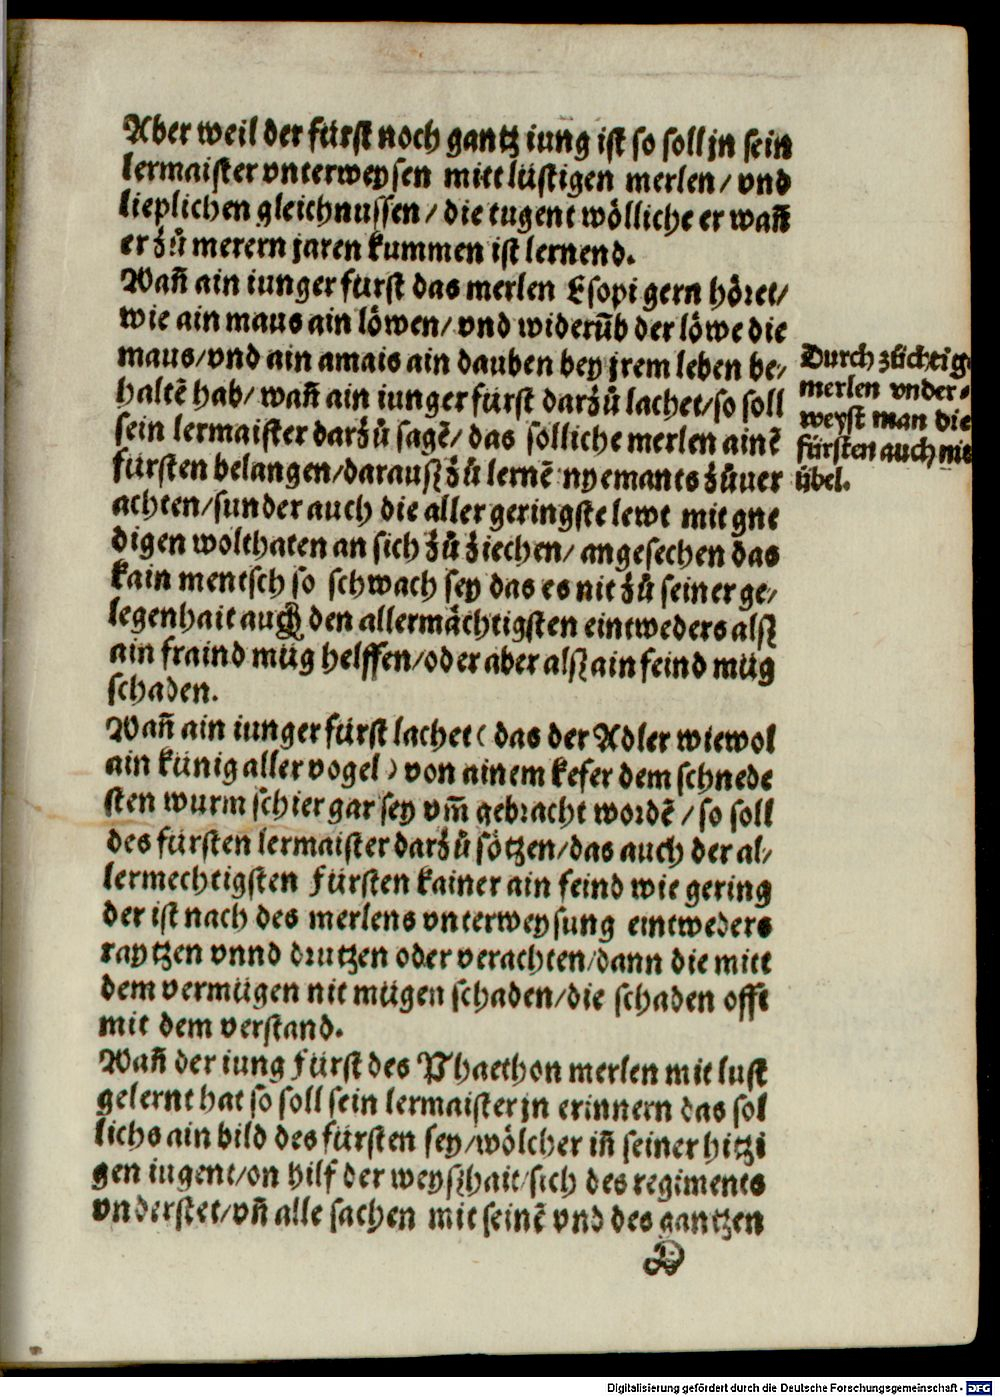 Aber weil der fürst noch gantz iung ist so soll jn sein
lermaister vnterweysen mitt lüstigen merlen / vnd
lieplichen gleichnussen / die tugent wölliche er wañ
er zů merern jaren kummen ist lernend.
Wañ ain iunger fürst das merlen Esopi gern höret/
wie ain maus ain löwen/ vnd widerũb der löwe die
maus/vnd ain amais ain dauben bey jrem leben be/
haltẽ hab/ wañ ain iunger fürst darzů lachet/so soll
sein lermaister darzů sagẽ/ das solliche merlen ainẽ
fürsten belangen/darausz zů lernẽ nyemants zůuer
achten/sunder auch die aller geringste lewt mit gne
digen wolthaten an sich zů ziechen/ angesechen das
kain mentsch so schwach sey das es nit zů seiner ge/
legenhait auch den allermächtigsten eintweders alsz
ain fraind müg helffen/oder aber alsz ain feind müg
schaden.
Wañ ain iunger fürst lachet ( das der Adler wiewol
ain künig aller vogel ) von ainem kefer dem schnede
sten wurm schier gar sey vm̃ gebracht wordẽ / so soll
des fürsten lermaister darzů sötzen/das auch der al/
lermechtigsten fürsten kainer ain feind wie gering
der ist nach des merlens vnterweysung eintweders
raytzen vnnd drutzen oder verachten/dann die mitt
dem vermügen nit mügen schaden/die schaden offt
mit dem verstand.
Wañ der iung fürst des Phaethon merlen mit lust
gelernt hat so soll sein lermaister jn erinnern das sol
lichs ain bild des fürsten sey/wölcher iñ seiner hitzi
gen iugent/on hilf der weyszhait/sich des regiments
vnderstet/vñ alle sachen mit seinẽ vnd des gantzen
D
Durch züchtig
merlen vnder-
weyst man die
fürsten auch nit
übel.
Digitalisierung gefördert durch die Deutsche Forschungsgemeinschaft - DFG